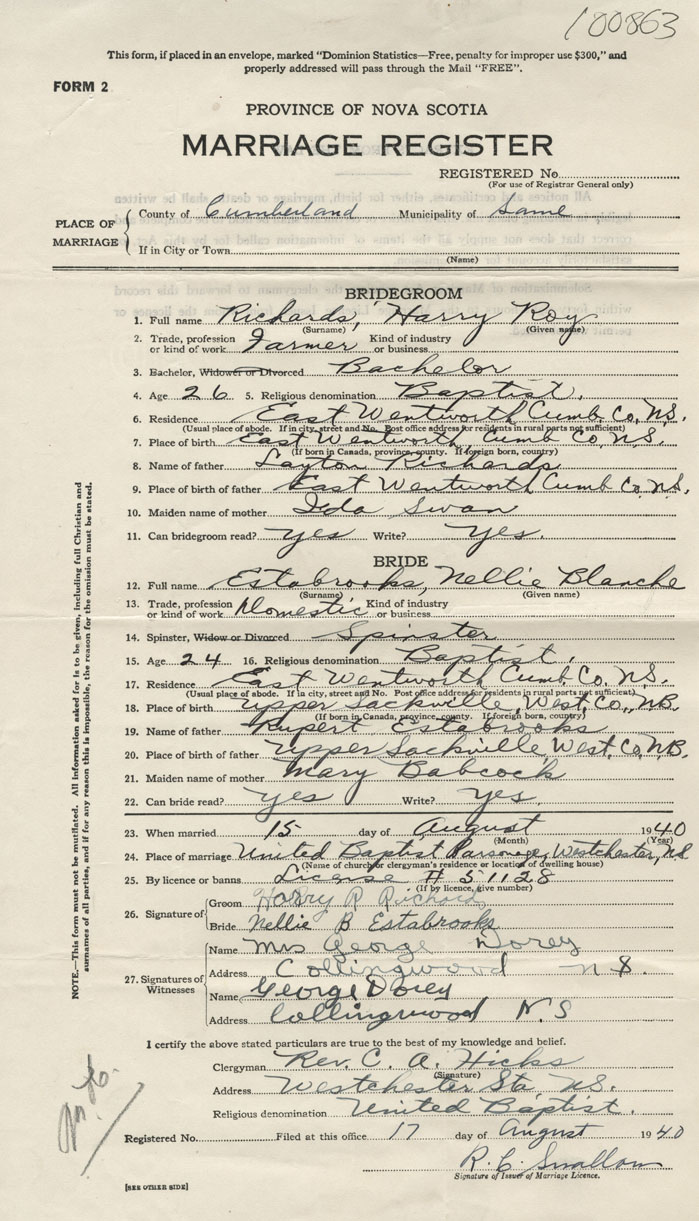 100863
This form, if placed in an envelope, marked "Dominion Statistics—Free, penalty for improper use $300," and
properly addressed will pass through the Mail "FREE".
FORM 2
PROVINCE OF NOVA SCOTIA
MARRIAGE REGISTER
REGISTERED No.
(For use of Registrar General only)
PLACE OF MARRIAGE
County of Cumberland Municipality of Same
If in City or Town
(Name)
BRIDEGROOM
1. Full name Richards, Harry Roy
(Surname) (Given name)
2. Trade, profession or kind of work Farmer Kind of industry or business
3. Bachelor, Widower or Divorced Bachelor
4. Age 26 5. Religious denomination Baptist.
6. Residence East Wentworth Cumb. Co. N.S.
(Usual place of abode. If in city, street and No. Post office address for residents in rural parts not sufficient)
7. Place of birth East Wentworth Cumb Co. N.S.
(If born in Canada, province, county. If foreign born, country)
8. Name of father Layton Richards
9. Place of birth of father East Wentworth Cumb Co. N.S.
10. Maiden name of mother Ida Swan
11. Can bridegroom read? yes Write? yes.
BRIDE
12. Full name Estabrooks, Nellie Blanche
(Surname) (Given name)
13. Trade, profession or kind of work Domestic Kind of industry or business
14. Spinster, Widow or Divorced Spinster
15. Age 24 16. Religious denomination Baptist.
17. Residence East Wentworth Cumb Co. N.S.
(Usual place of abode. If in city, street and No. Post office address for residents in rural parts not sufficient)
18. Place of birth Upper Sackville, West. Co., N.B.
(If born in Canada, province, county. If foreign born, country)
19. Name of father Rupert Estabrooks
20. Place of birth of father Upper Sackville, West. Co. N.B.
21. Maiden name of mother Mary Babcock
22. Can bride read? yes Write? yes.
23. When married 15 day of August 1940
(Month) (Year)
24. Place of marriage United Baptist Parsonage, Westchester, N.S.
(Name of church or clergyman's residence or location of dwelling house)
25. By licence or banns License # 51128
(If by licence, give number)
26. Signature of
Groom Harry R Richards
Bride Nellie B Estabrooks
27. Signatures of Witnesses
Name Mrs George Dorey
Address Collingwood N S.
Name George Dorey
Address Collingwood N.S
I certify the above stated particulars are true to the best of my knowledge and belief.
Clergyman Rev. C. A. Hicks
(Signature)
Address Westchester Sta. N.S.
Religious denomination United Baptist.
Registered No. Filed at this office 17 day of August 1940
R. C. Swallow
Signature of Issuer of Marriage Licence.
[SEE OTHER SIDE]
NOTE.—This form must not be mutilated. All information asked for is to be given, including full Christian and
surnames of all parties, and if for any reason this is impossible, the reason for the omission must be stated.